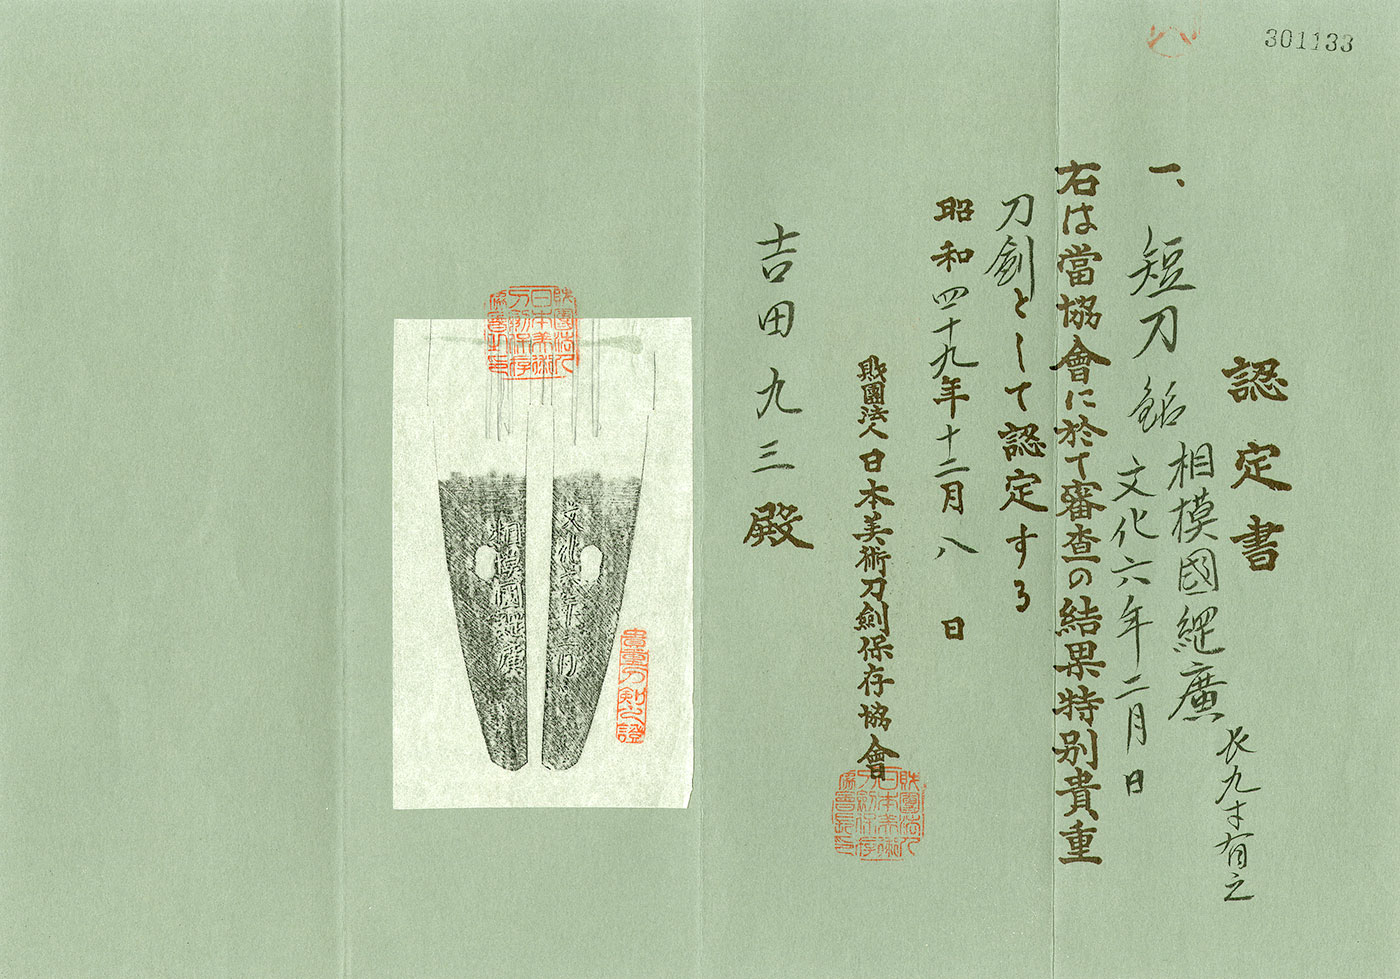 301133
認定書
一、短刀 銘 相模國綱廣 長九寸有之
文化六年二月日
右は當協會に於て審査の結果特別貴重
刀劍として認定する
昭和四十九年十二月八日
財團法人日本美術刀劍保存協會
財團法人日本美術刀劍保存協會長之印
吉田九三殿
財團法人日本美術刀劍保存協會之印
文化六年二月日
相模國綱廣
貴重刀剣之證